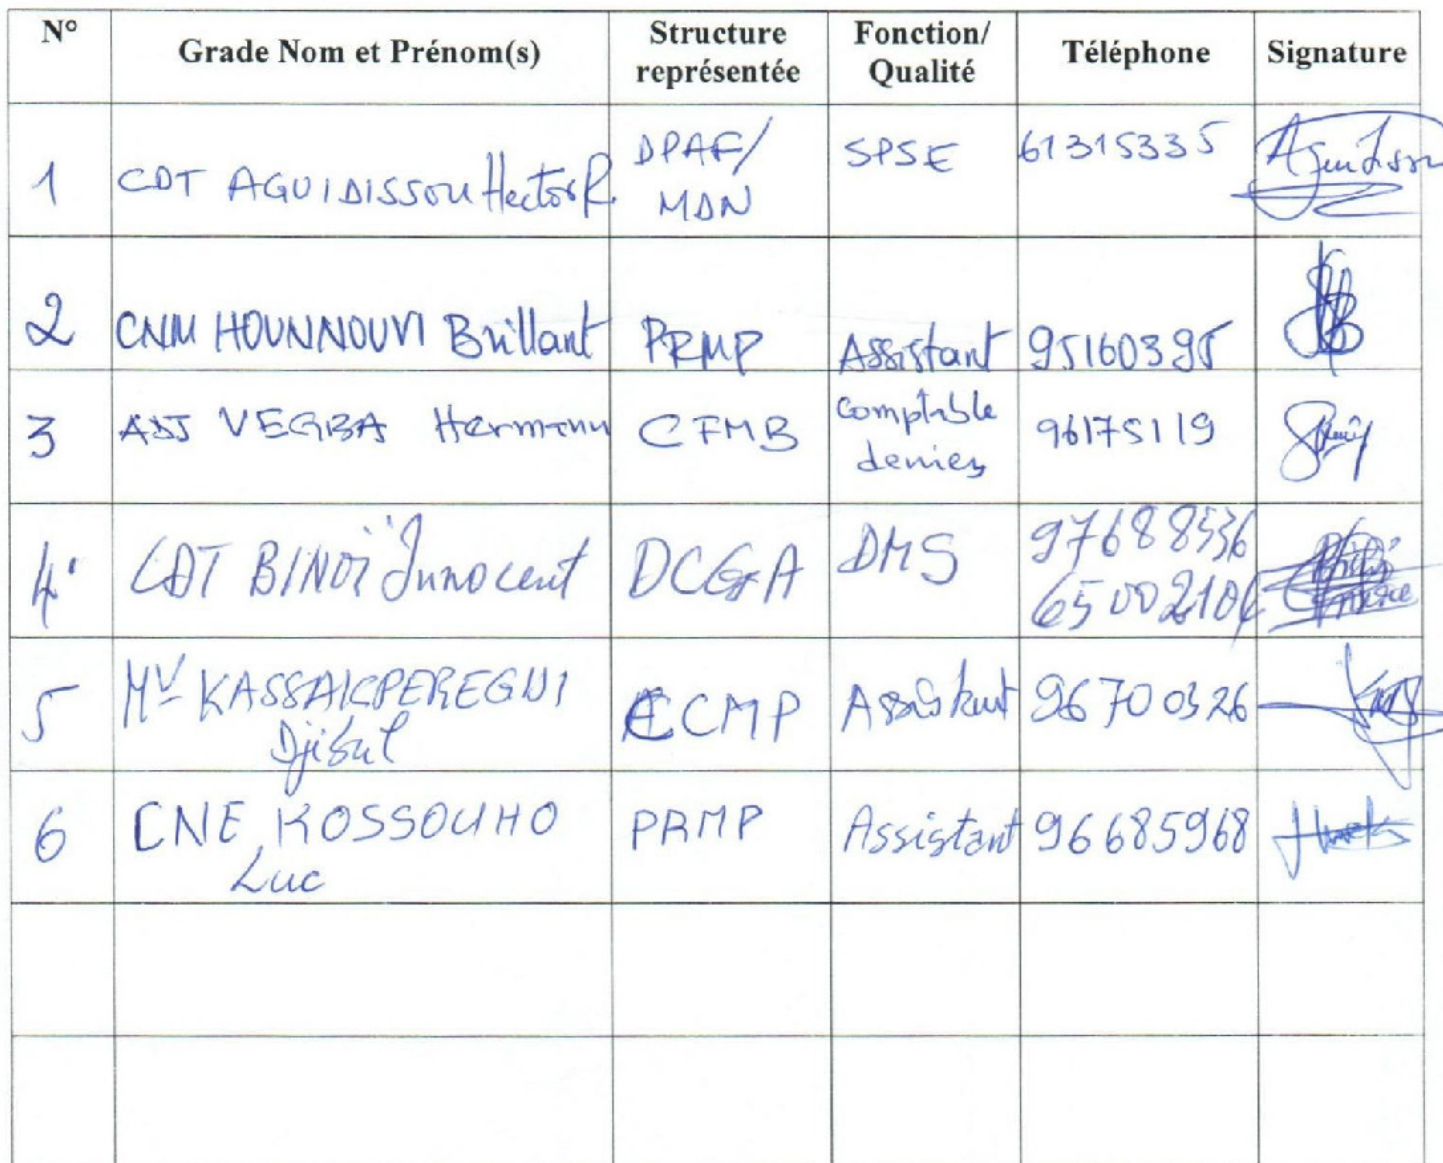 N° Grade Nom et Prénom(s) Structure représentée Fonction/ Qualité Téléphone Signature
1 CDT AGUIDISSOU Hector R. DPAF/ MDN SPSE 61315335
2 CNM HOUNNOUVI Brillant PRMP Assistant 95160395
3 ADJ VEGBA Hermann CFMB Comptable deniers 96175119
4 CDT BINOÏ Innocent DCGA DMS 97688536
6500210
5 Mr KASSAKPEREGUI CCMP Assistant 96700326
Djibril
6 CNE KOSSOUHO PRMP Assistant 96685968
Luc